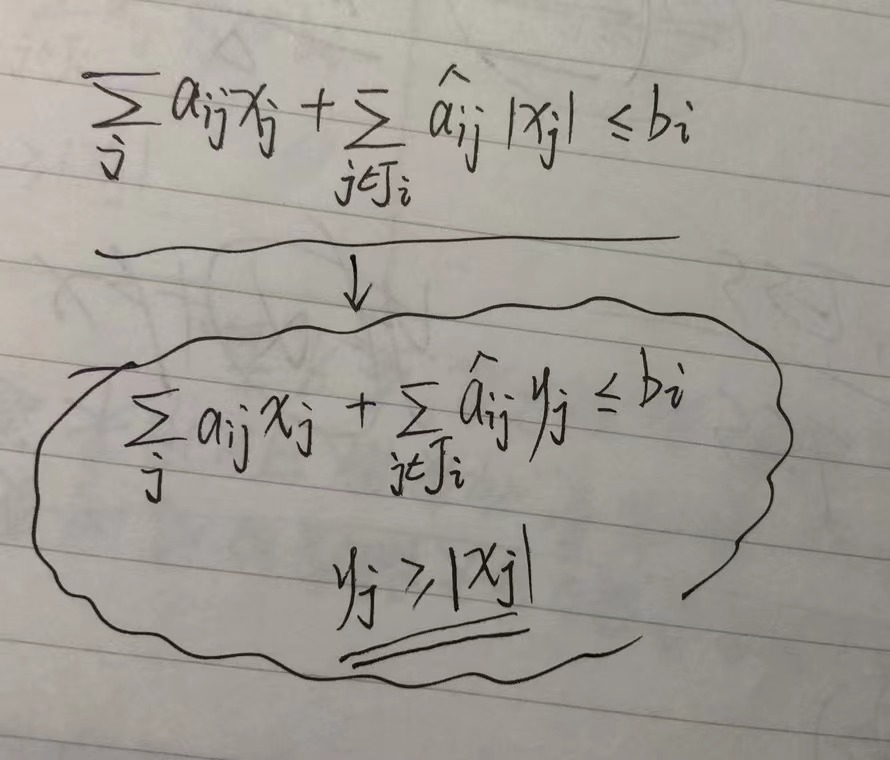 ∑_j a_{ij} x_j + ∑_{j∈J_i} â_{ij} |x_j| ≤ b_i
↓
∑_j a_{ij} x_j + ∑_{j∈J_i} â_{ij} y_j ≤ b_i
y_j ≥ |x_j|